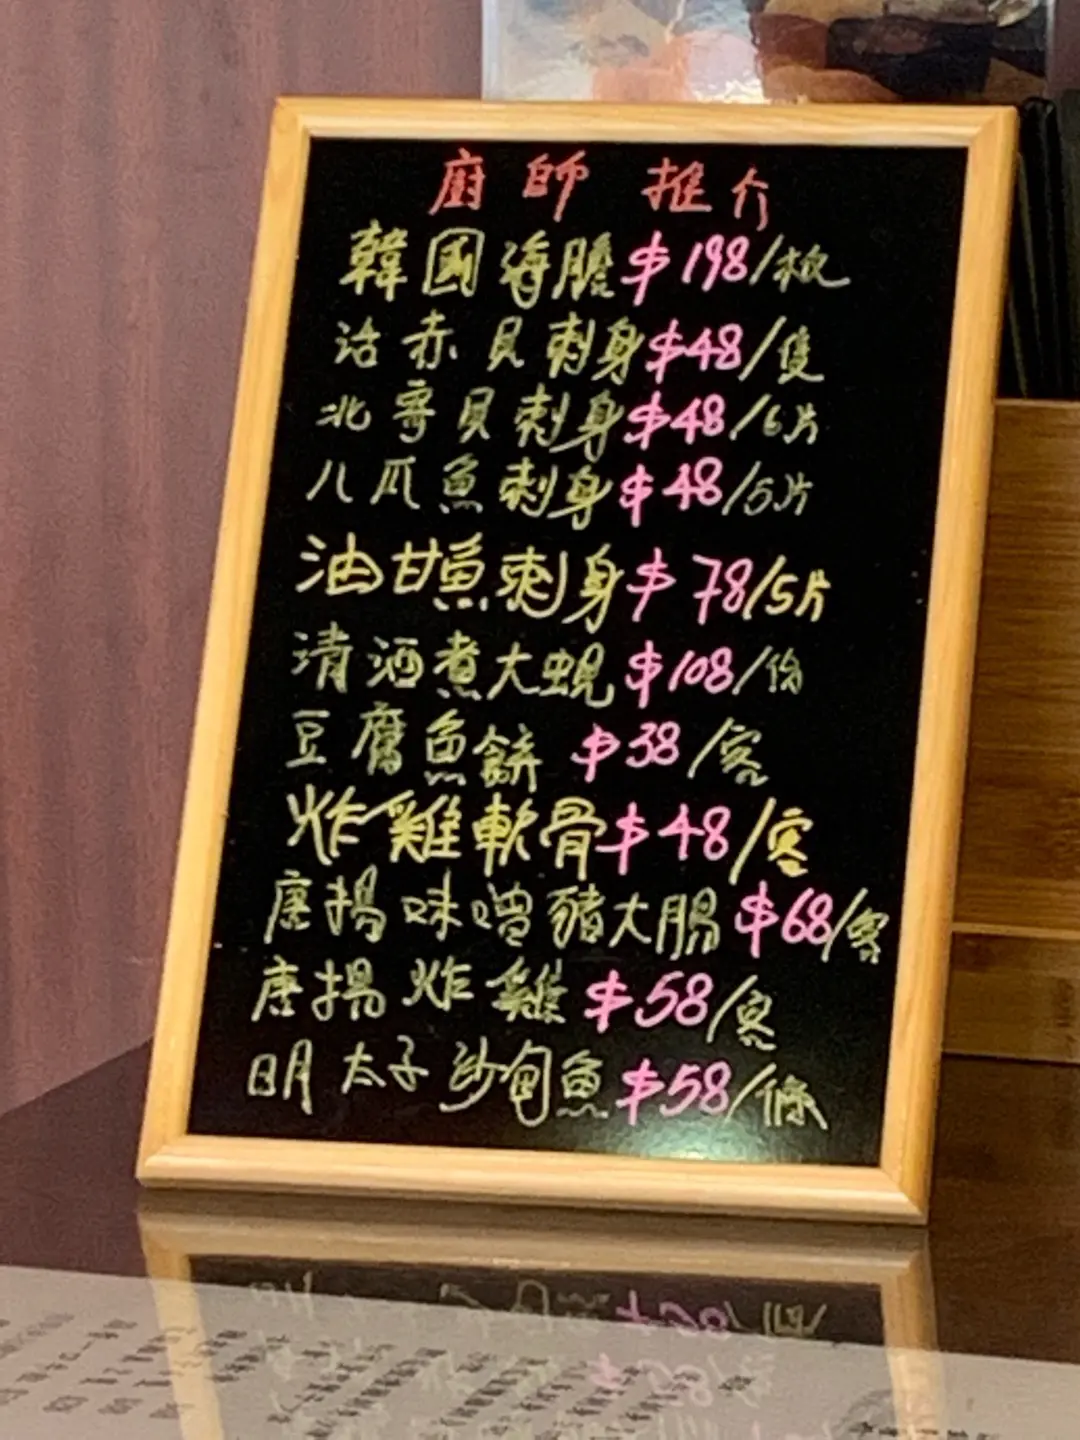 廚師推介
韓國海膽$198/板
活赤貝刺身$48/隻
北寄貝刺身$48/6片
八爪魚刺身$48/5片
油甘魚刺身$78/5片
清酒煮大蜆$108/份
豆腐魚餅 $38/客
炸雞軟骨$48/客
唐揚味噌豬大腸$68/客
唐揚炸雞$58/客
明太子沙甸魚$58/條